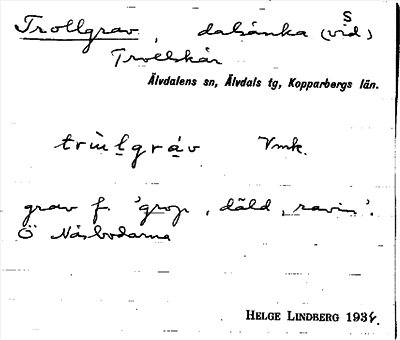 Trollgrav, dalsänka (vid) S
Trollskär
Älvdalens sn, Älvdals tg, Kopparbergs län.
grav f. 'grop, däld, ravin'.
Ö Näsbodarna
HELGE LINDBERG 1934.